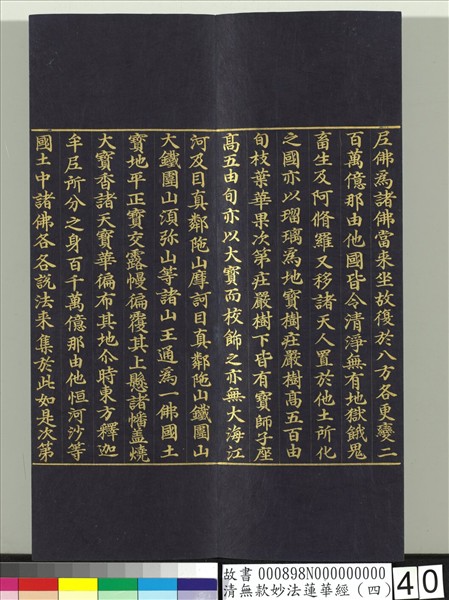 尼佛為諸佛當來坐故復於八方各更變二
百萬億那由他國皆令清淨無有地獄餓鬼
畜生及阿脩羅又移諸天人置於他土所化
之國亦以瑠璃為地寶樹莊嚴樹高五百由
旬枝葉華果次第莊嚴樹下皆有寶師子座
高五由旬亦以大寶而校飾之亦無大海江
河及目真鄰陁山摩訶目真鄰陁山鐵圍山
大鐵圍山湏弥山等諸山王通為一佛國土
寶地平正寶交露幔徧覆其上懸諸幡蓋燒
大寶香諸天寶華徧布其地尒時東方釋迦
牟尼所分之身百千萬億那由他恒河沙等
國土中諸佛各各說法來集於此如是次第
故書 000898N000000000
清無款妙法蓮華經(四)
40